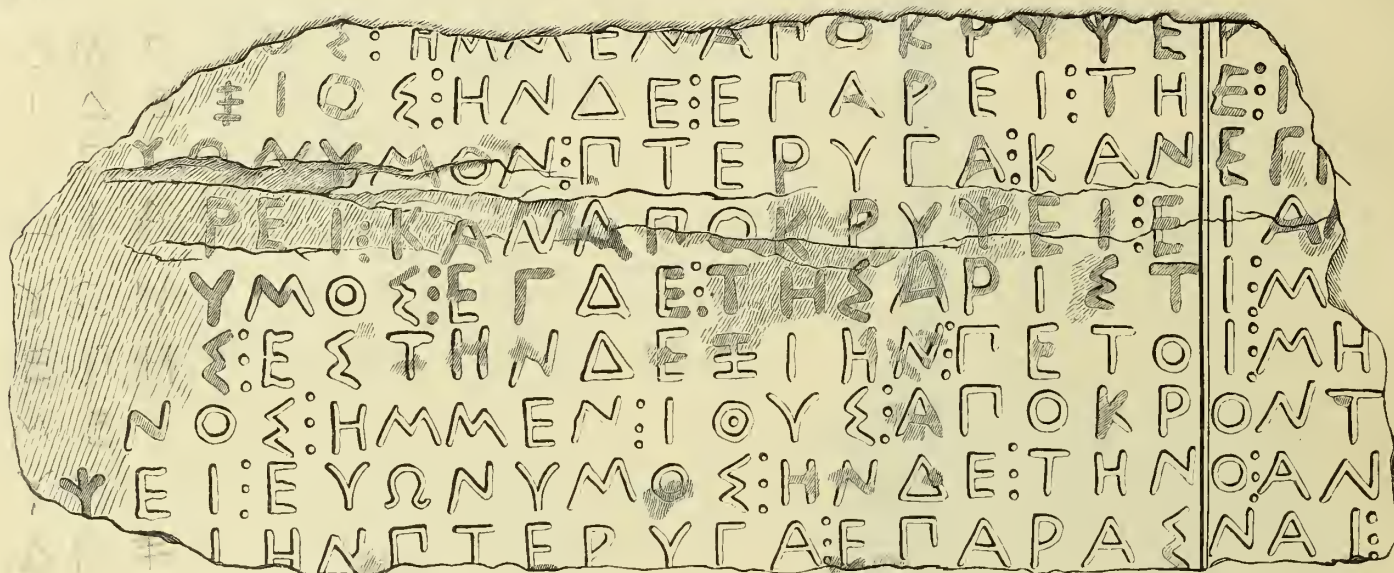 Σ⁝ΗΜΜΕΝΑΠΟΚΡΥΨΕ
ΞΙΟΣ⁝ΗΝΔΕ⁝ΕΠΑΡΕΙ⁝ΤΗ Ε⁝Ι
ΥΩΝΥΜΟΝ⁝ΠΤΕΡΥΓΑ⁝ΚΑΝ ΕΠ
ΡΕΙ⁝ΚΑΝΑΠΟΚΡΥΨΕΙ⁝Ε ΙΑ
ΥΜΟΣ⁝ΕΓΔΕ⁝ΤΗΣΑΡΙΣΤ Ι⁝Μ
Σ⁝ΕΣΤΗΝΔΕΞΙΗΝ⁝ΠΕΤΟ Ι⁝ΜΗ
ΝΟΣ⁝ΗΜΜΕΝ⁝ΙΘΥΣ⁝ΑΠΟΚΡ ΟΝΤ
ΨΕΙ⁝ΕΥΩΝΥΜΟΣ⁝ΗΝΔΕ⁝ΤΗΝ Ο⁝ΑΝ
ΙΗΝΠΤΕΡΥΓΑ⁝ΕΠΑΡΑΣ ΝΑΙ⁝